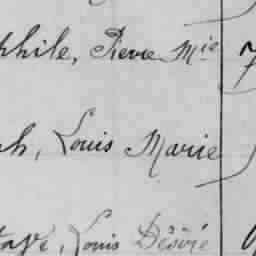 phile, Pierre Mie
ph, Louis Marie
tave, Louis Désiré